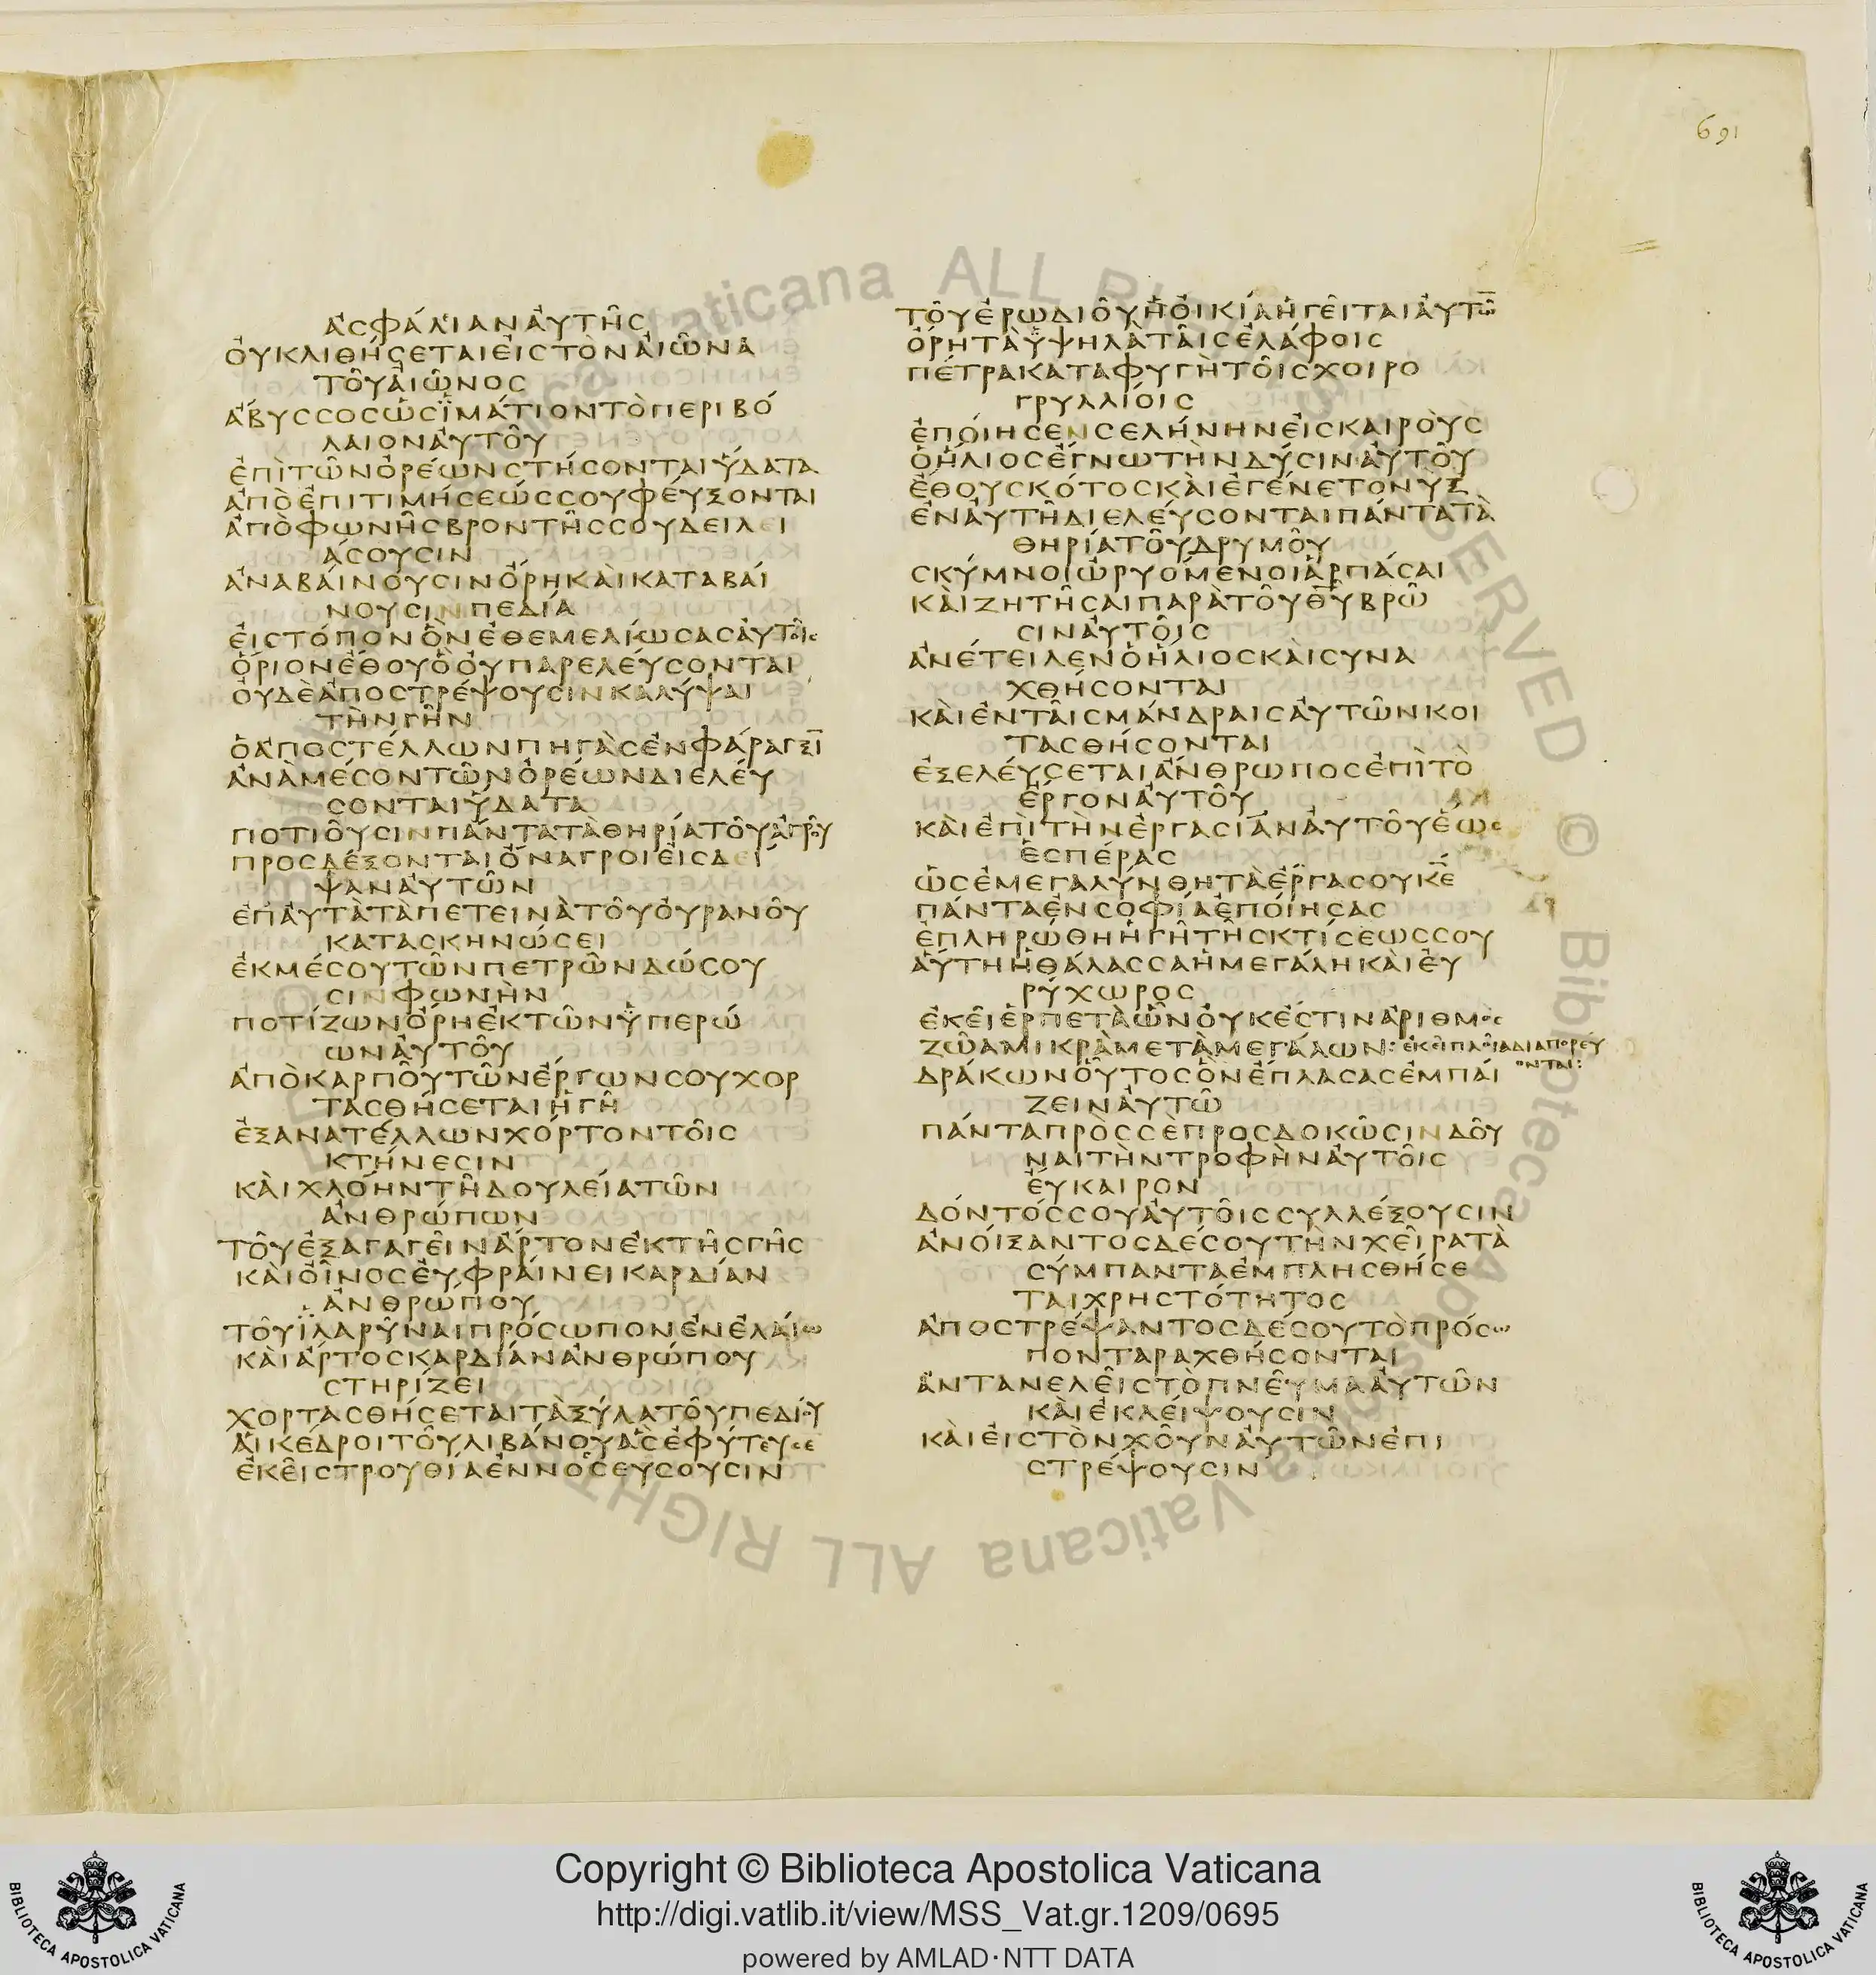 691
ἀσφάλιαναὐτῆς
ὀυκλιθήσεταιἐιστὸναἰῶνα
τοῦαἰῶνος
ἄβυσσοςὡςϊμάτιοντὸπεριβό
λαιοναὐτοῦ
ἐπὶτῶνὀρέωνστήσονταιὕδατα
ἀπὸἐπιτιμήσεώςσουφέυξονται
ἀπὸφωνῆςβροντῆςσουδειλει
άσουσιν
ἀναβάινουσινὄρηκαὶκαταβάι
νουσινπεδία
ἐιστόπονὃνἐθεμελίωσαςαὐτοῖς
ὅριονἔθουὃὀυπαρελέυσονται
ὀυδὲἀποστρέψουσινκαλύψαι
τὴνγῆν
ὁἀποστέλλωνπηγὰςἐνφάραγξῑ
ἀνὰμέσοντῶνὀρέωνδιελέυ
σονταιὕδατα
ποτιοῦσινπάντατὰθηρίατοῦἀγροῦ
προσδέξονταιὄναγροιἐισδεί
ψαναὐτῶν
ἐπἀυτὰτὰπετεινὰτοῦὀυρανοῦ
κατασκηνώσει
ἐκμέσουτῶνπετρῶνδώσου
σινφωνὴν
ποτίζωνὄρηἐκτῶνὑπερώ
ωναὐτοῦ
ἀπὸκαρποῦτῶνἔργωνσουχορ
τασθήσεταιἡγῆ
ἐξανατέλλωνχόρτοντοῖς
κτήνεσιν
καὶχλόηντῆδουλείατῶν
ἀνθρώπων
τοῦἐξαγαγεῖνἄρτονἐκτῆςγῆς
καὶὀῖνοςἐυφράινεικαρδίαν
ἀνθρώπου
τοῦϊλαρῦναιπρόσωπονἐνἐλάιω
καὶἄρτοςκαρδίανἀνθρώπου
στηρίζει
χορτασθήσεταιτὰξύλατοῦπεδίου
ἁικέδροιτοῦλιβάνουἃςἐφύτευσε
ἐκεῖστρουθίαἐννοσσεύσουσιν
τοῦἐρωδιοῦἡὀικίαἡγεῖταιἀυτω̄
ὄρητὰὑψηλὰταῖςἐλάφοις
πέτρακαταφυγὴτοῖςχοιρο
γρυλλίοις
ἐπόιησενσελήνηνἐισκαιροὺς
ὁἥλιοςἔγνωτὴνδύσιναὐτοῦ
ἔθουσκότοςκαὶἐγένετονὺξ
ἐναὐτῆδιελέυσονταιπάντατὰ
θηρίατοῦδρυμοῦ
σκύμνοιὠρυόμενοιἁρπάσαι
καὶζητῆσαιπαρὰτοῦθ̄ῡβρῶ
σιναὐτοῖς
ἀνέτειλενὁἥλιοςκαὶσυνα
χθήσονται
καὶἐνταῖςμάνδραιςαὐτῶνκοι
τασθήσονται
ἐξελέυσεταιἄνθρωποςἐπὶτὸ
ἔργοναὐτοῦ
καὶἐπὶτὴνἐργασίαναὐτοῦἕως
ἑσπέρας
ὡςἐμεγαλύνθητὰἔργασουκ̄ε̄
πάνταἐνσοφίαἐπόιησας
ἐπληρώθηἡγῆτῆςκτίσεώςσου
ἅυτηἡθάλασσαἡμεγάληκαὶἐυ
ρύχωρος
ἐκεῖἑρπετὰὧνὀυκἔστινἀριθμὸς
ζῶαμικρὰμετὰμεγάλων:ἐκεῖπλοῖαδιαπορέυ
ονται:
δράκωνοὗτοςὃνἔπλασαςἐμπάι
ζειναὐτῶ
πάνταπρὸςσὲπροσδοκῶσινδοῦ
ναιτὴντροφὴναὐτοῖς
ἔυκαιρον
δόντόςσουαὐτοῖςσυλλέξουσιν
ἀνόιξαντοςδέσουτὴνχεῖρατὰ
σύμπανταἐμπλησθήσε
ταιχρηστότητος
ἀποστρέψαντοςδέσουτὸπρόσω
πονταραχθήσονται
ἀντανελεῖςτὸπνεῦμααὐτῶν
καὶἐκλείψουσιν
καὶἐιςτὸνχοῦναὐτῶνἐπι
στρέψουσιν
Copyright © Biblioteca Apostolica Vaticana
http://digi.vatlib.it/view/MSS_Vat.gr.1209/0695
powered by AMLAD·NTT DATA
BIBLIOTECA APOSTOLICA VATICANA
BIBLIOTECA APOSTOLICA VATICANA